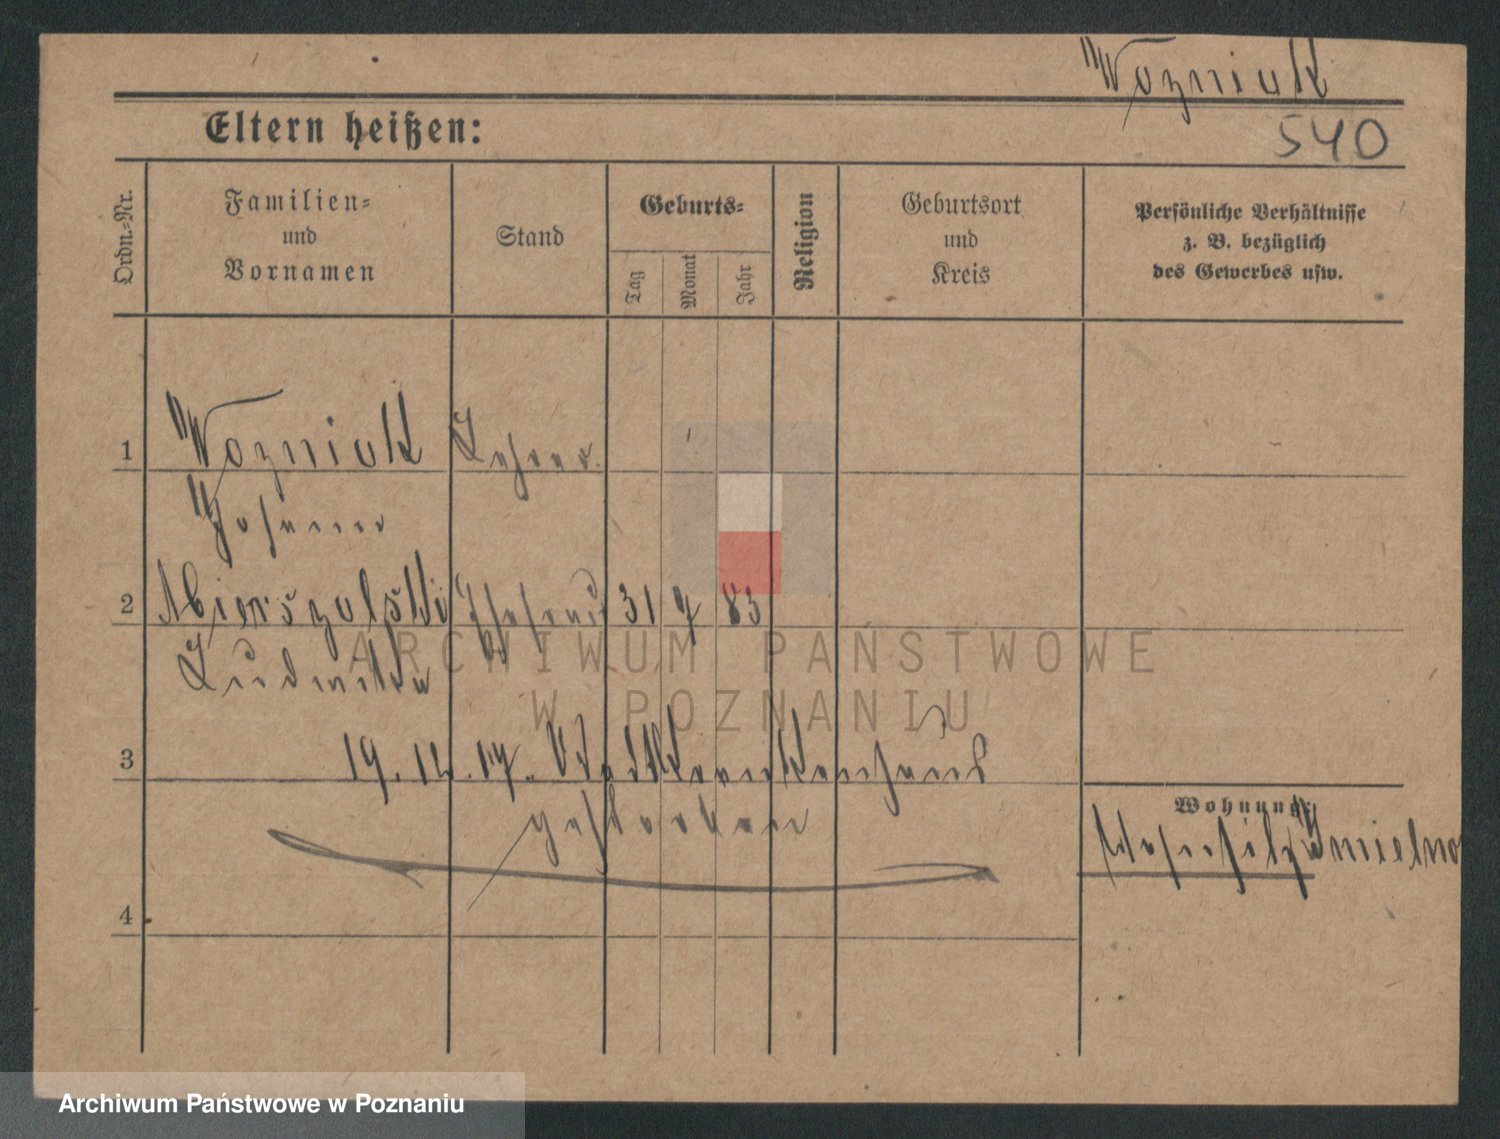 Wozniak
Eltern heißen:
540
Ordn.-Nr.
Familien-
und
Vornamen
Stand
Geburts-
Tag
Monat
Jahr
Religion
Geburtsort
und
Kreis
Persönliche Verhältnisse
z. B. bezüglich
des Gewerbes usw.
1 Wozniak Lehrer
Johann
2 Mierszalski Ehefrau 31 7 83
Ludwika
ARCHIWUM PAŃSTWOWE
W POZNANIU
3 19. 12. 17. Stadtkrankenhaus
gestorben
Wohnung:
Imielno
4
Archiwum Państwowe w Poznaniu